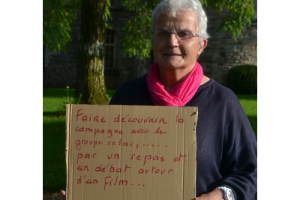 Faire découvrir la
campagne avec le
groupe
par un repas et
un débat autour
d'un film...